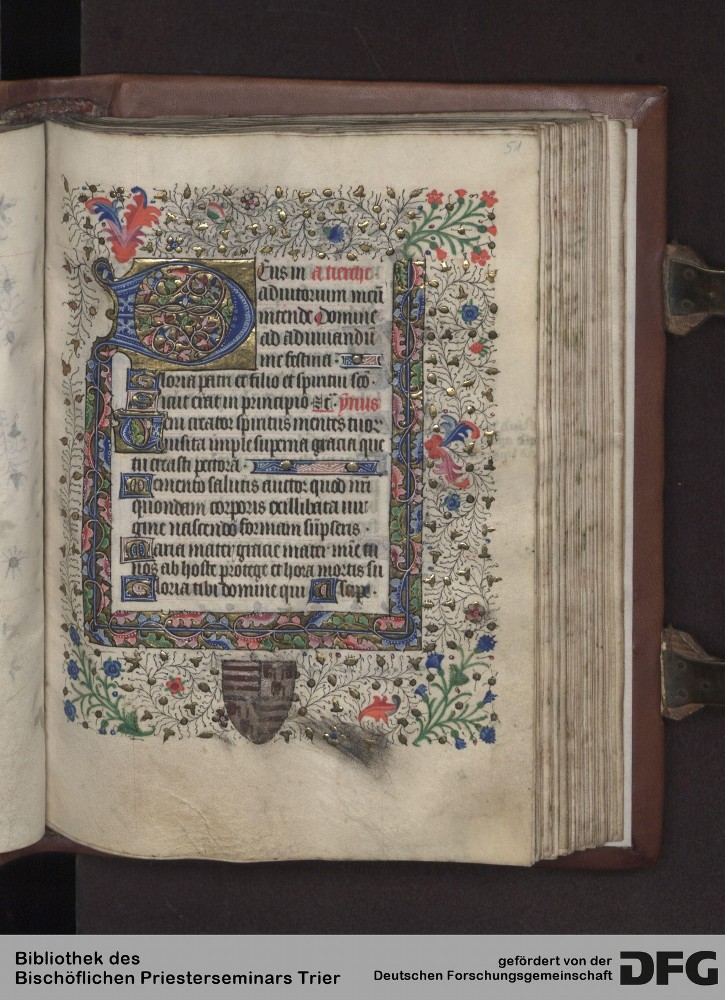 51
Deus in A tierche
adiutorium meū
intende Domine
ad adiuuandū
me festina ·
Gloria patri et filio et spiritui sc̄o ·
Sicut erat in principio ⁊c̄. ym̄us
Ueni creator spiritus mentes tuor̄
uisita imple superna gracia que
tu creasti pectora ·
Memento salutis auctor quod nr̄i
quondam corporis ex illibata uir
gine nascendo formam sūpseris ·
Maria mater gracie mater mīe tu
nos ab hoste protege et hora mortis su
Gloria tibi domine qui A scipe ·
Bibliothek des
Bischöflichen Priesterseminars Trier
gefördert von der
Deutschen Forschungsgemeinschaft
DFG